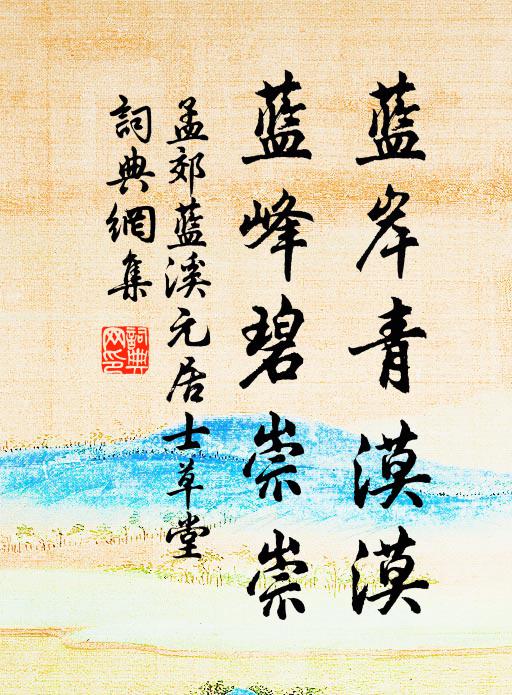 藍岸青漠漠
藍峰碧崇崇
孟郊藍溪元居士草堂
詞典網集
詞典網印